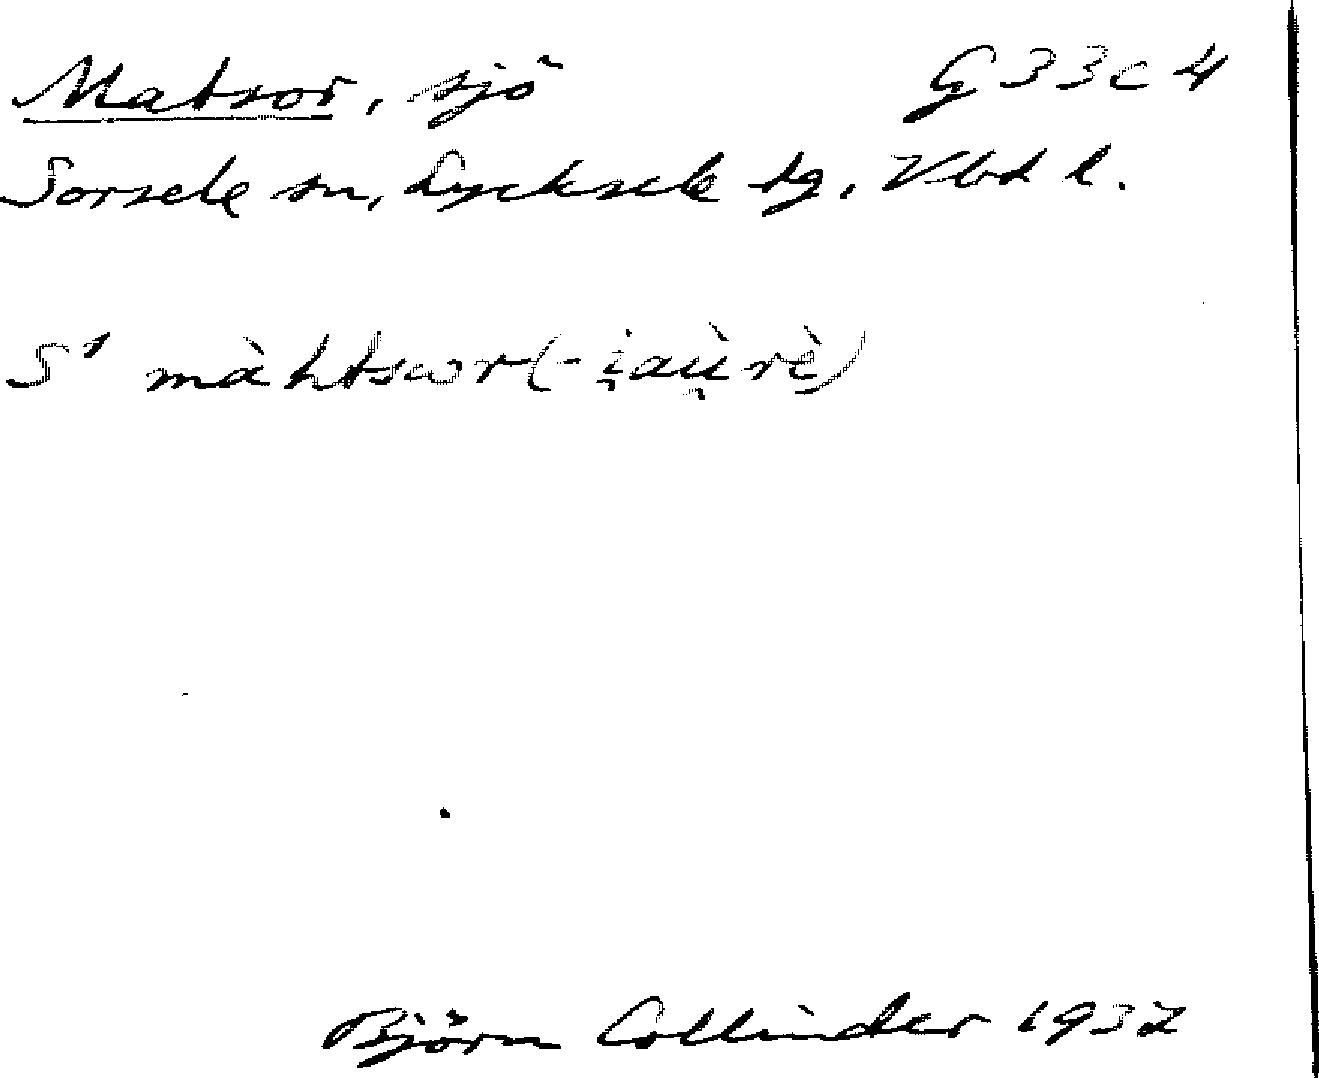 Matsor, sjö G 33c 4
Sorsele sn, Lycksele tg, Vbd l.
S¹ màhtsωr(-i̯aù̯rè̮)
Björn Collinder 1932